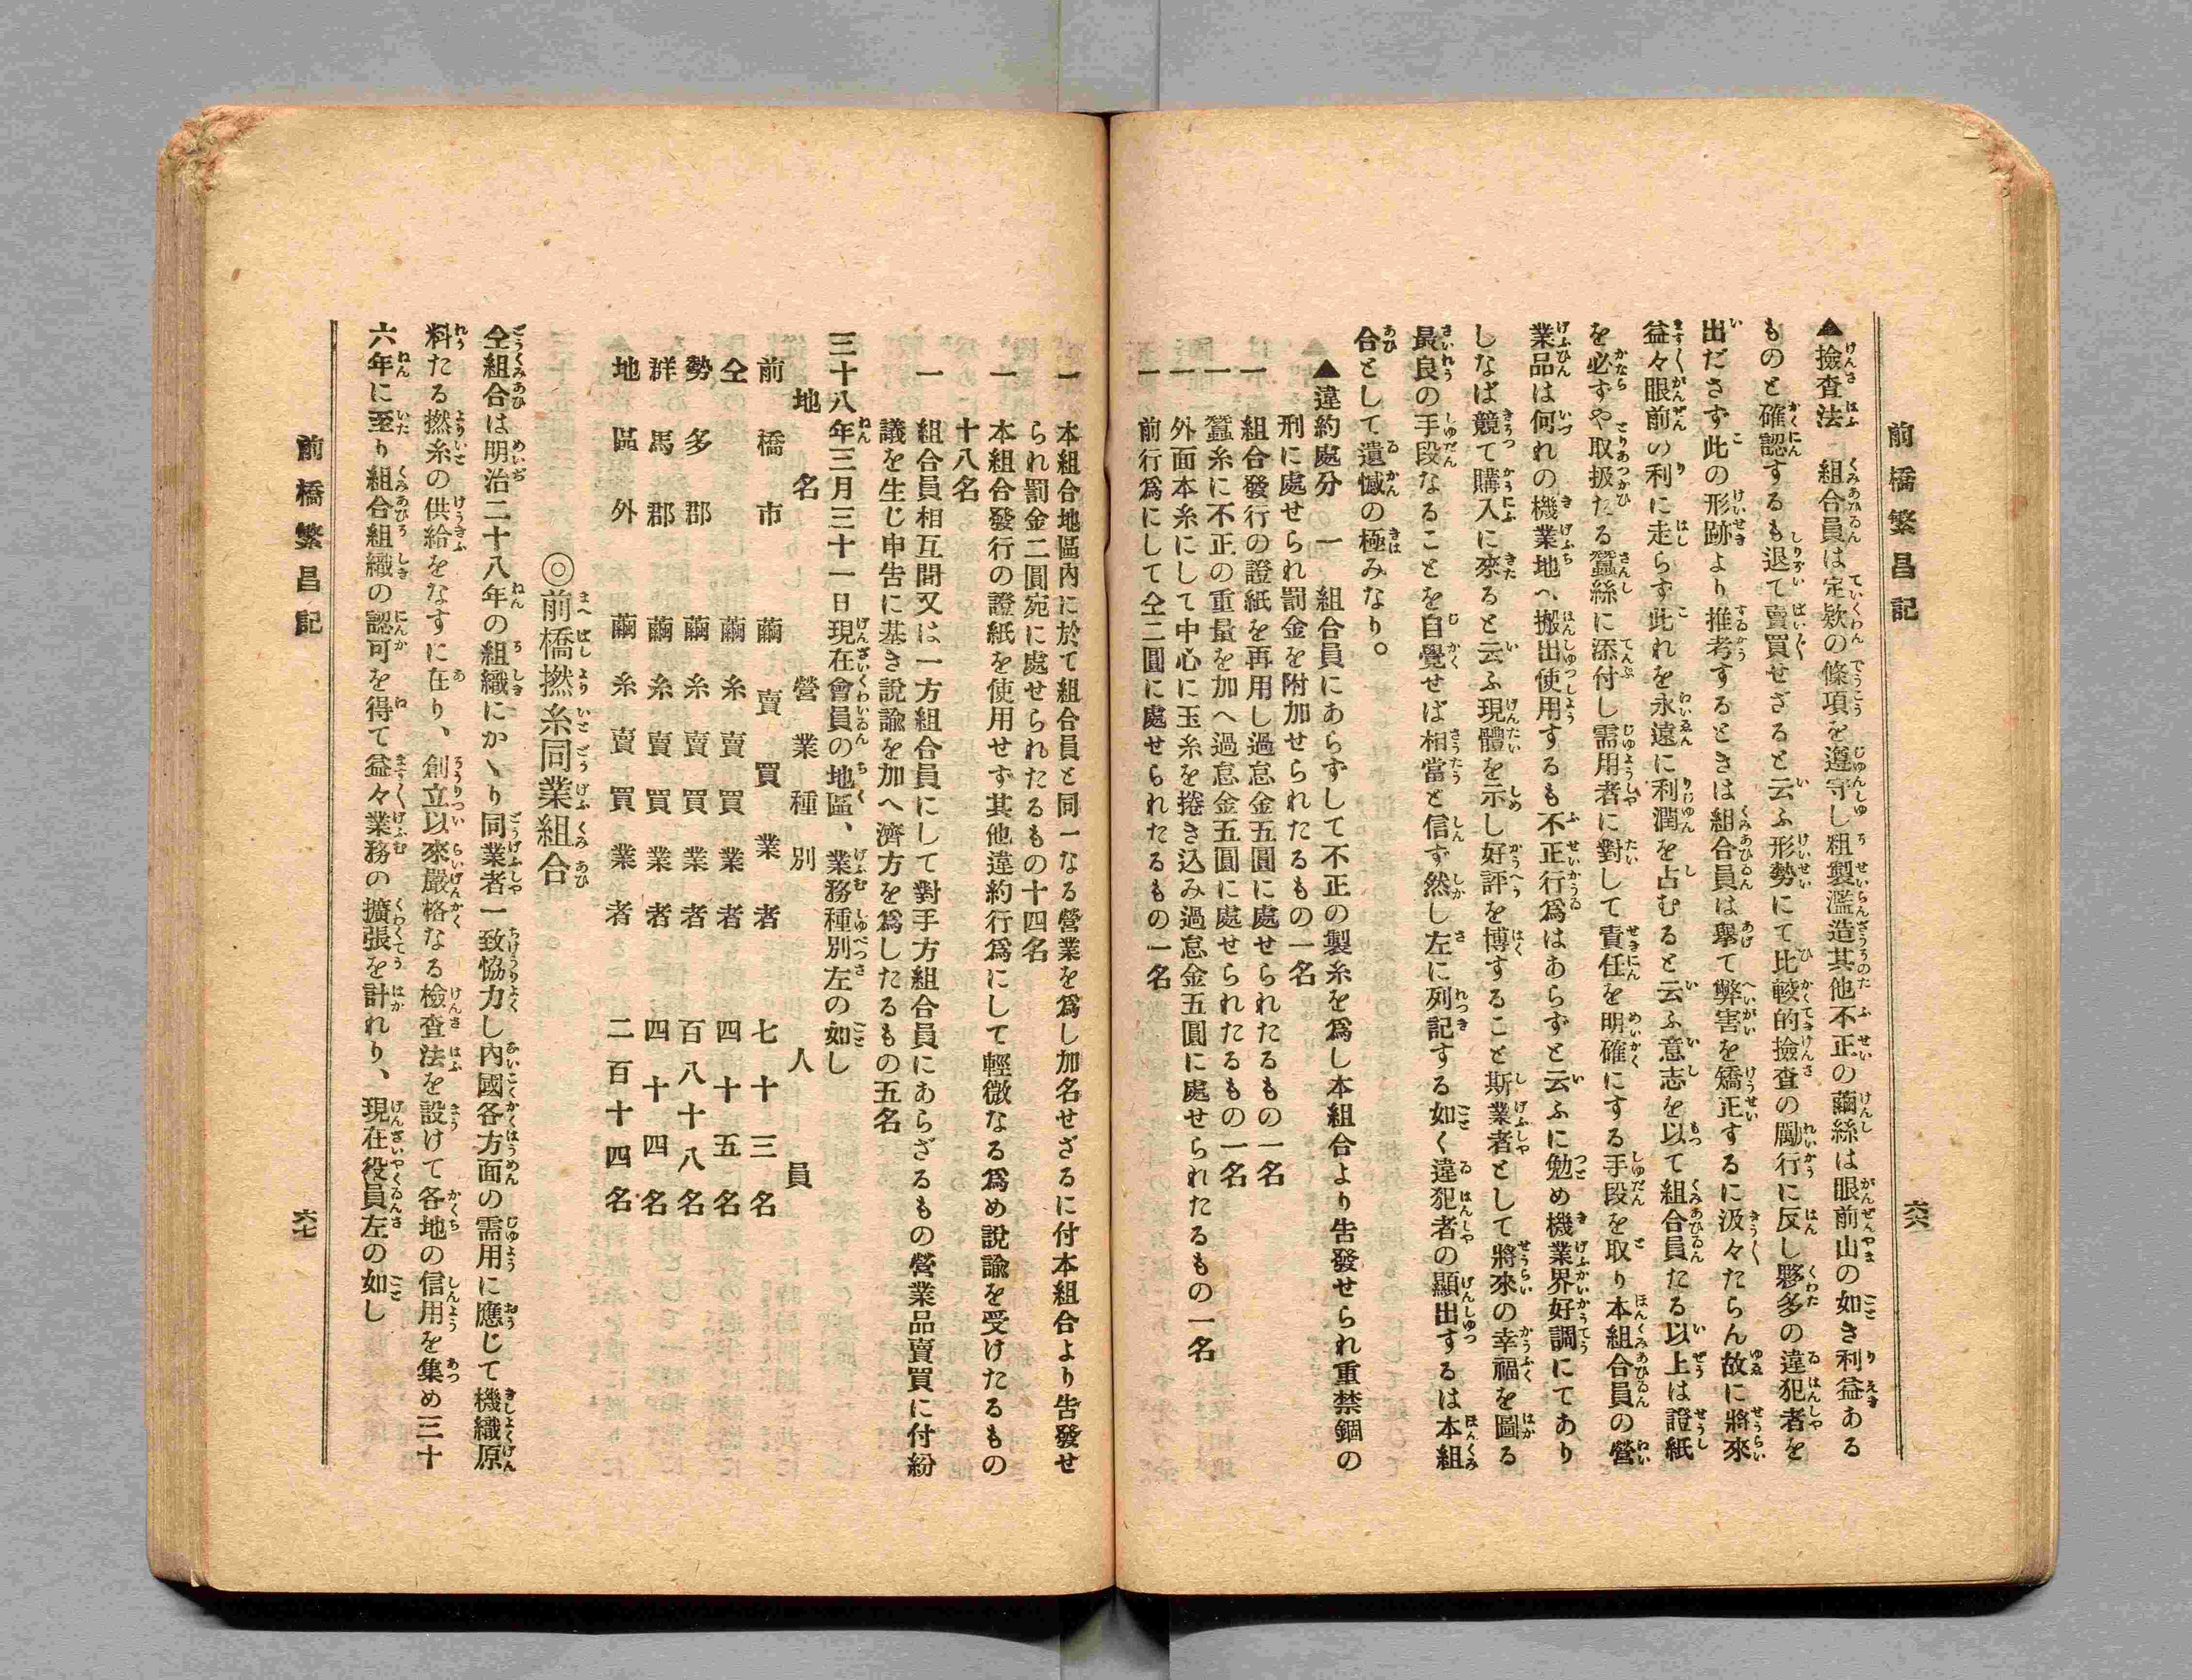 前橋繁昌記
六六
▲撿査法　組合員は定欵の條項を遵守し粗製濫造其他不正の繭絲は眼前山の如き利益ある
ものと確認するも退て賣買せざると云ふ形勢にて比較的撿査の勵行に反し夥多の違犯者を
出ださず此の形跡より推考するときは組合員は擧て弊害を矯正するに汲々たらん故に將來
益々眼前の利に走らず此れを永遠に利潤を占むると云ふ意志を以て組合員たる以上は證紙
を必ずや取扱たる蠶絲に添付し需用者に對して責任を明確にする手段を取り本組合員の營
業品は何れの機業地へ搬出使用するも不正行爲はあらずと云ふに勉め機業界好調にてあり
しなば競て購入に來ると云ふ現體を示し好評を博すること斯業者として將來の幸福を圖る
最良の手段なることを自覺せば相當と信ず然し左に列記する如く違犯者の顯出するは本組
合として遺憾の極みなり。
▲違約處分　一　組合員にあらずして不正の製糸を爲し本組合より告發せられ重禁錮の
刑に處せられ罰金を附加せられたるもの一名
一　組合發行の證紙を再用し過怠金五圓に處せられたるもの一名
一　蠶糸に不正の重量を加へ過怠金五圓に處せられたるもの一名
一　外面本糸にして中心に玉糸を捲き込み過怠金五圓に處せられたるもの一名
一　前行爲にして仝二圓に處せられたるもの一名
一　本組合地區内に於て組合員と同一なる營業を爲し加名せざるに付本組合より告發せ
られ罰金二圓宛に處せられたるもの十四名
一　本組合發行の證紙を使用せず其他違約行爲にして輕微なる爲め説諭を受けたるもの
十八名
一　組合員相互間又は一方組合員にして對手方組合員にあらざるもの營業品賣買に付紛
議を生じ申告に基き說諭を加へ濟方を爲したるもの五名
三十八年三月三十一日現在會員の地區、業務種別左の如し
地名　營業種別　人員
前橋市　繭賣買業者　七十三名
仝　繭糸賣買業者　四十五名
勢多郡　繭糸賣買業者　百八十八名
群馬郡　繭糸賣買業者　四十四名
地區外　繭糸賣買業者　二百十四名
◎前橋撚糸同業組合
仝組合は明治二十八年の組織にかゝり同業者一致恊力し內國各方面の需用に應じて機織原
料たる撚糸の供給をなすに在り、創立以來嚴格なる檢査法を設けて各地の信用を集め三十
六年に至り組合組織の認可を得て益々業務の擴張を計れり、現在役員左の如し
前橋繁昌記
六七